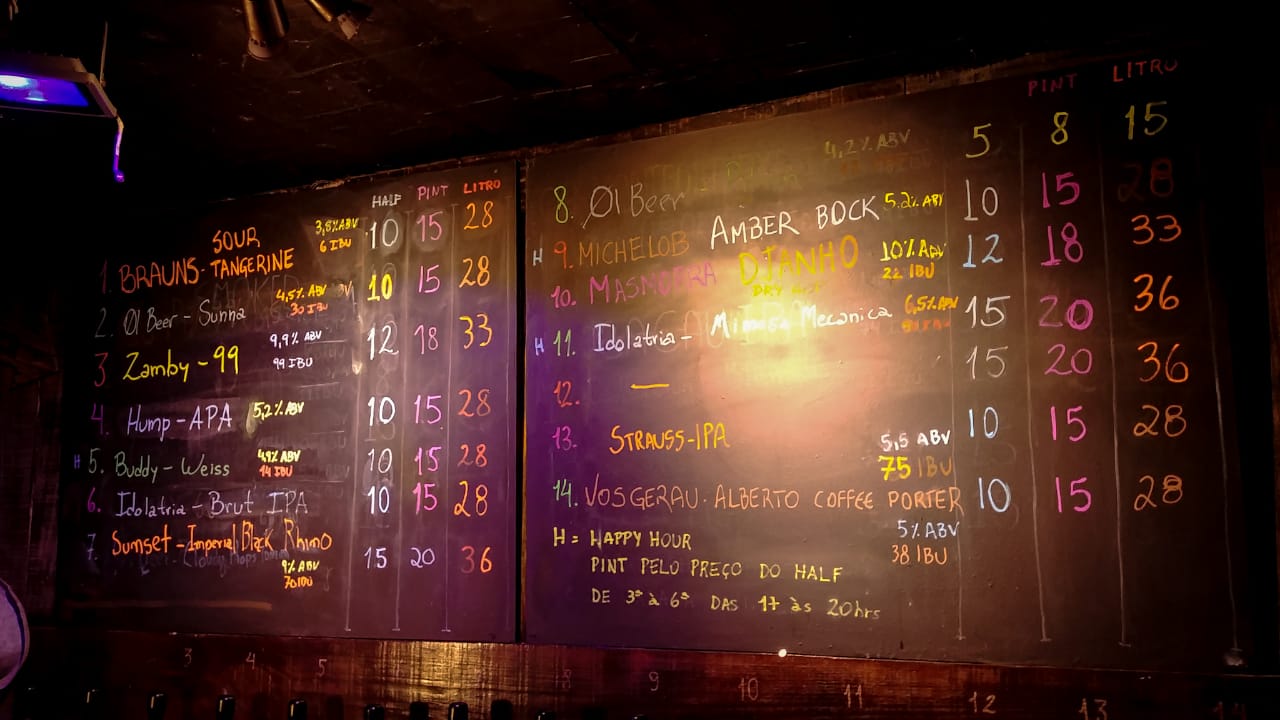 HALF PINT LITRO
1. BRAUNS - SOUR TANGERINE 3,8% ABV 6 IBU 10 15 28
2. Øl Beer - Sunna 4,5% ABV 30 IBU 10 15 28
3 Zamby - 99 9,9% ABV 99 IBU 12 18 33
4. Hump - APA 5,2% ABV 10 15 28
H 5. Buddy - Weiss 4,9% ABV 14 IBU 10 15 28
6. Idolatria - Brut IPA 10 15 28
7. Sunset - Imperial Black Rhino 9% ABV 70 IBU 15 20 36
PINT LITRO
8. Øl Beer 4,2% ABV 5 8 15
H 9. MICHELOB AMBER BOCK 5.2% ABV 10 15 28
10. MASMORRA DIANHO 10% ABV 22 IBU 12 18 33
H 11. Idolatria - Mimosa Mecanica 6,5% ABV 15 20 36
12. — 15 20 36
13. STRAUSS-IPA 5,5 ABV 75 IBU 10 15 28
14. VOSGERAU - ALBERTO COFFEE PORTER 5% ABV 38 IBU 10 15 28
H = HAPPY HOUR
PINT PELO PREÇO DO HALF
DE 3ª à 6ª DAS 17 às 20hrs
3 4 5 8 9 10 11 12 13 14